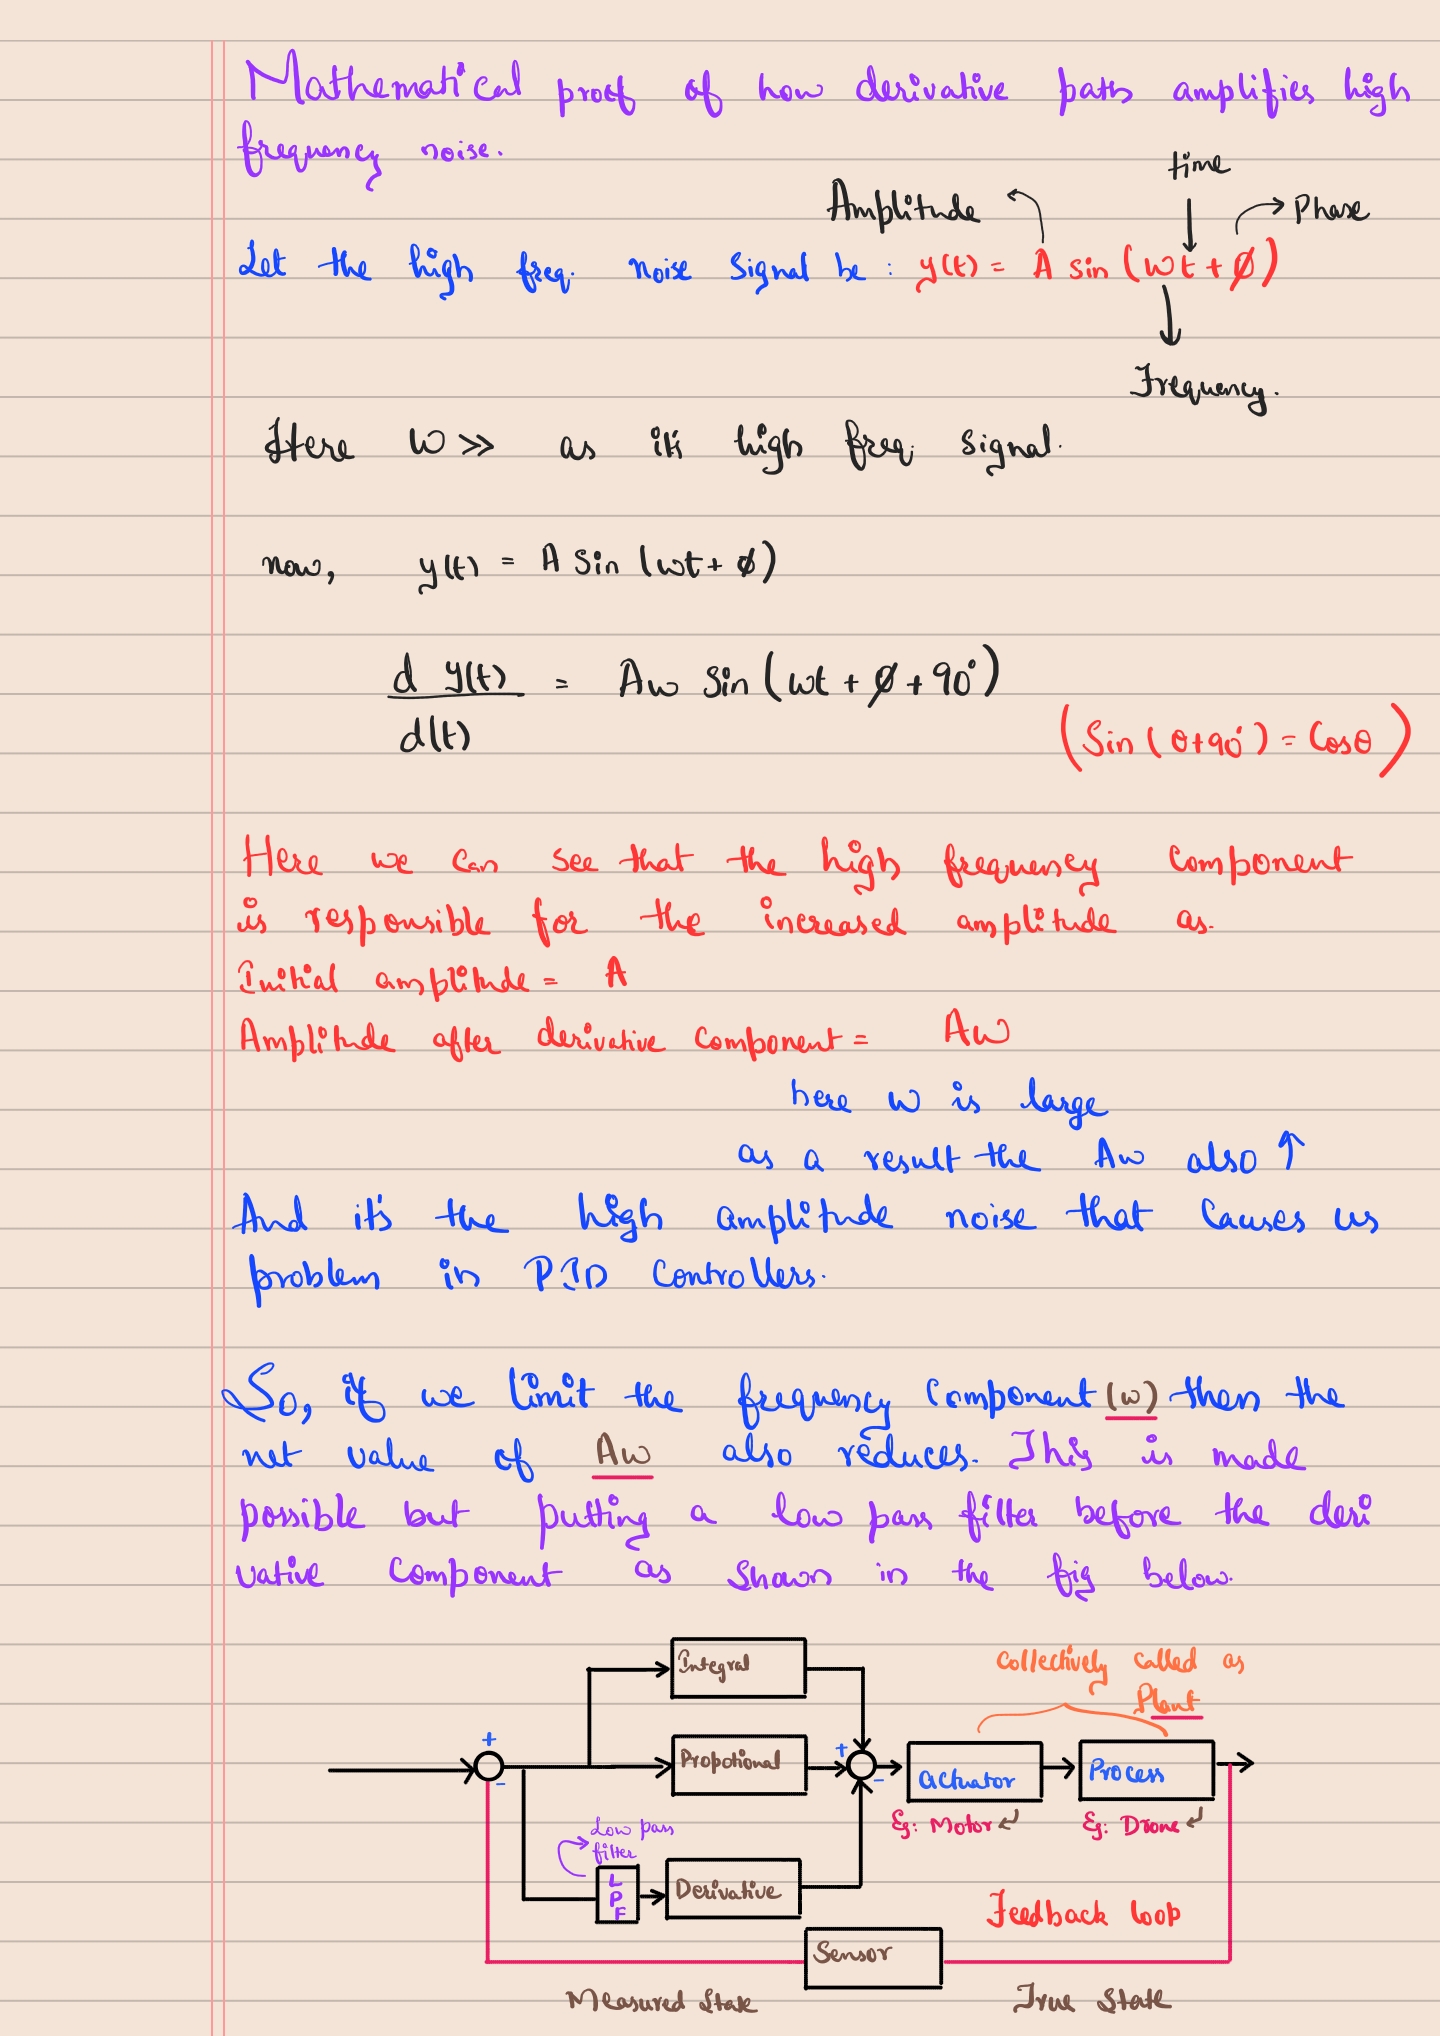 Mathematical proof of how derivative path amplifies high
frequency noise.
time
Amplitude
Phase
Let the high freq. noise signal be : y(t) = A sin (wt + ϕ)
Frequency.
Here w >> as it's high freq. signal.
now, y(t) = A Sin (wt + ϕ)
d y(t) / d(t) = Aw Sin (wt + ϕ + 90°)
(Sin (θ+90°) = Cosθ)
Here we can see that the high frequency component
is responsible for the increased amplitude as.
Initial amplitude = A
Amplitude after derivative component = Aw
here w is large
as a result the Aw also ↑
And it's the high amplitude noise that causes us
problem in PID controllers.
So, if we limit the frequency component (w) then the
net value of Aw also reduces. This is made
possible but putting a low pass filter before the deri
vative component as shown in the fig below.
Integral
Collectively called as
Plant
+
Propotional
+
-
-
Actuator
Process
Eg: Motor
Eg: Drone
Low pass
filter
LPF
Derivative
Feedback loop
Sensor
Measured State
True State